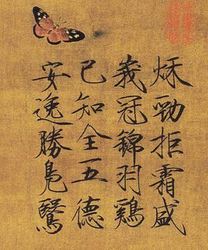 秋勁拒霜盛
峩冠錦羽雞
已知全五德
安逸勝鳧鷖